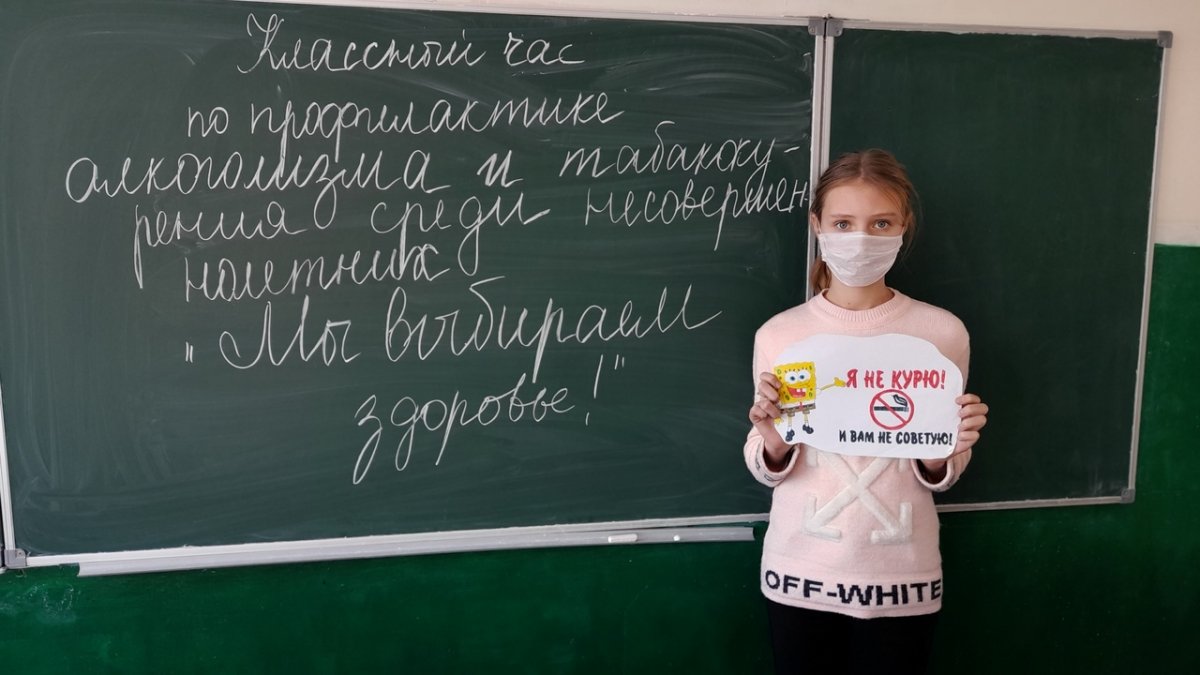 Классный час
по профилактике
алкоголизма и табакоку-
рения среди несовершен-
нолетних
"Мы выбираем
здоровье!"
Я НЕ КУРЮ!
И ВАМ НЕ СОВЕТУЮ!
OFF-WHITE